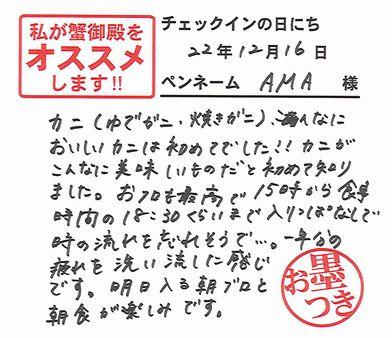 私が蟹御殿を
オススメ
します!!
チェックインの日にち
22年12月16日
ペンネーム AMA 様
カニ(ゆでガニ、焼きガニ)、こんなに
おいしいカニは初めてでした!!カニが
こんなに美味しいものだと初めて知り
ました。お風呂も最高で15時から食事
時間の18:30くらいまで入りっぱなしで
時の流れを忘れそうで…。一年分の
疲れを洗い流した感じ
です。明日入る朝ブロと
朝食が楽しみです。
お墨
つき